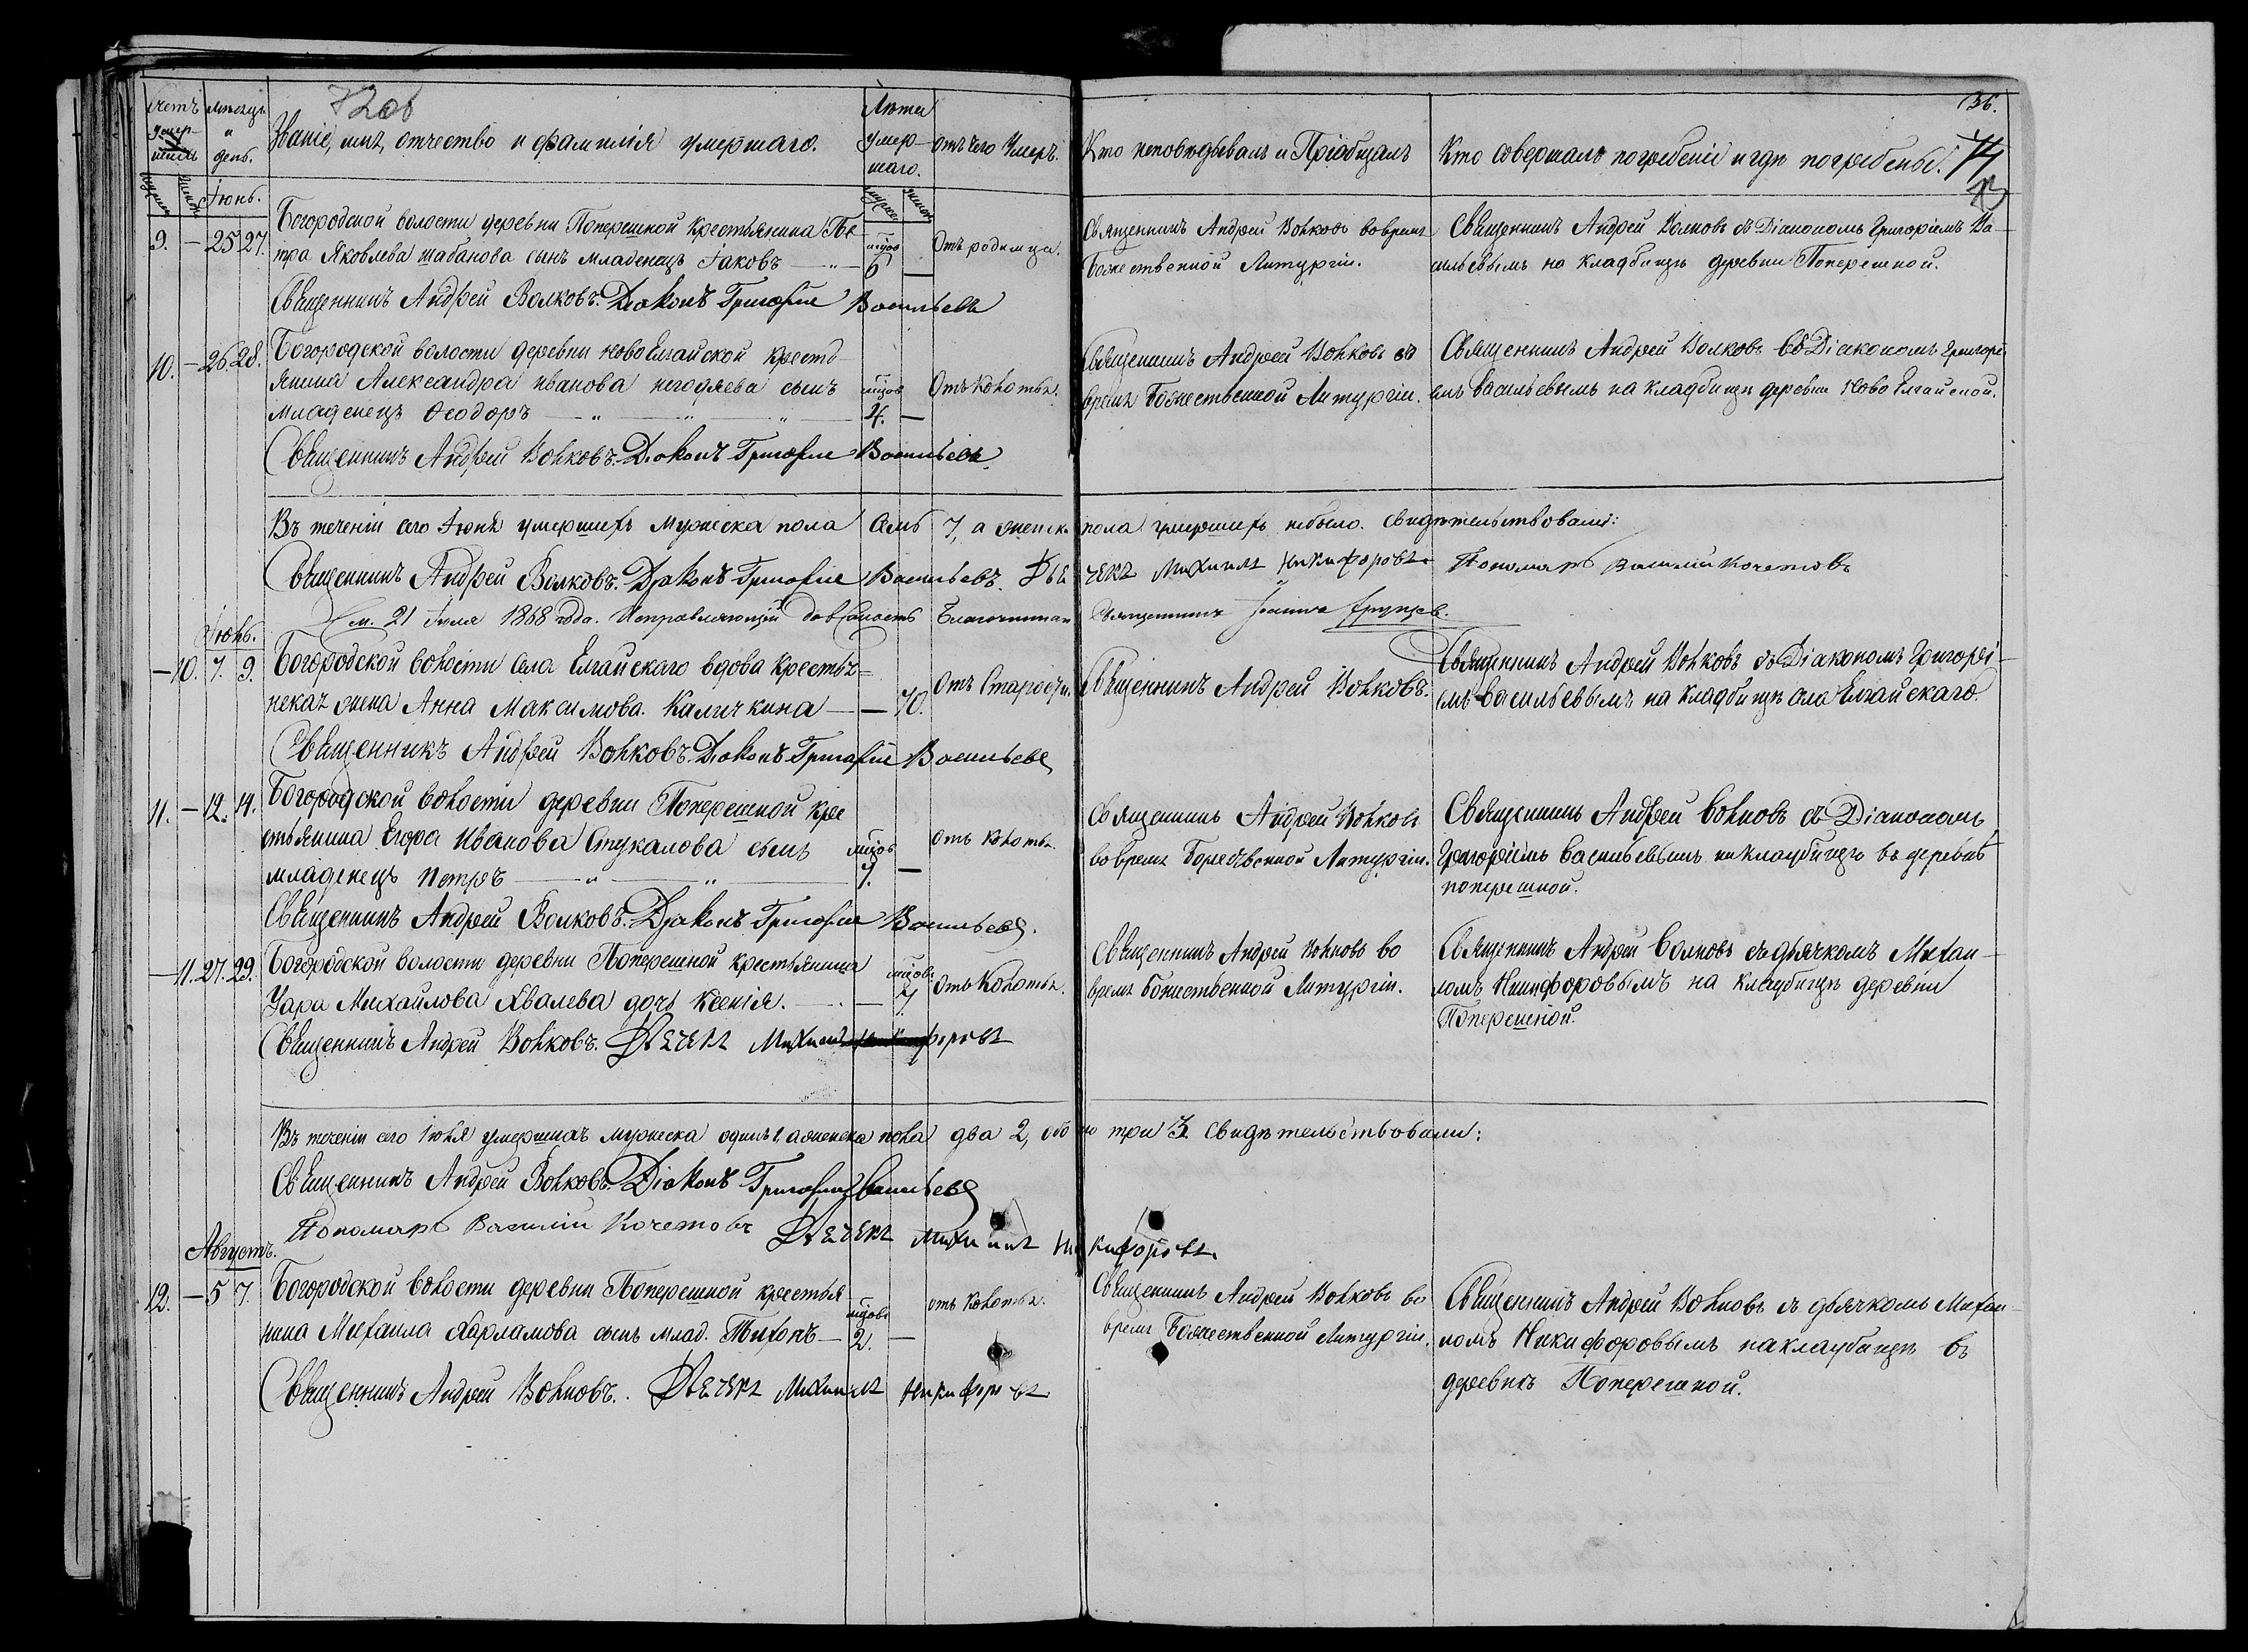 72об
36.
Счетъ умер-шихъ
Мѣсяцъ и день.
Званіе, имя, отчество и фамилія умершаго.
Лѣта умер-шаго.
Отъ чего Умеръ.
Кто исповѣдывалъ и Пріобщалъ
Кто совершалъ погребеніе и гдѣ погребены.
Іюнь.
9. — 25 27.
Богородской волости деревни Поперешной Крестьянина Пе-
тра Яковлева Шабанова сынъ младенецъ Іаковъ
мцов 6 —
Отъ родимца.
Священникъ Андрей Волковъ во время
Божественной Литургіи.
Священникъ Андрей Волковъ съ Діакономъ Григоріемъ Ва-
сильевымъ на кладбищѣ деревни Поперешной.
Священникъ Андрей Волковъ. Діаконъ Григорій Васильевъ
10. — 26. 28.
Богородской волости деревни Ново Елгайской кресть-
янина Александра Иванова Негодяева сынъ
младенецъ Ѳеодоръ
мцов 4. —
Отъ Колотья.
Священникъ Андрей Волковъ во
время Божественной Литургіи.
Священникъ Андрей Волковъ со Діакономъ Григорі-
емъ Васильевымъ на кладбищѣ деревни Ново Елгайской.
Священникъ Андрей Волковъ. Діаконъ Григорій Васильевъ.
Въ теченіи сего Іюня умершихъ мужеска пола семь 7, а женска пола умершихъ небыло. Свидѣтельствовали:
Священникъ Андрей Волковъ. Діаконъ Григорій Васильевъ. Дьечекъ Михаилъ Никифоровъ. Пономарь Василій Кочетовъ
21 Іюля 1868 года. Исправляющій должность Благочиннаго Священникъ Іоаннъ
Іюль.
— 10. 7. 9.
Богородской волости села Елгайскаго вдова Крестья-
нская жена Анна Максимова Каличкина
— 70.
Отъ Старости.
Священникъ Андрей Волковъ.
Священникъ Андрей Волковъ съ Діакономъ Григорі-
емъ Васильевымъ на кладбищѣ села Елгайскаго.
Священникъ Андрей Волковъ. Діаконъ Григорій Васильевъ
11. — 12. 14.
Богородской волости деревни Поперешной Кре
стьянина Егора Иванова Стукалова сынъ
младенецъ Петръ
мцов 9. —
Отъ Колотья.
Священникъ Андрей Волковъ
во время Божественной Литургіи.
Священникъ Андрей Волковъ съ Діакономъ
Григоріемъ Васильевымъ на кладбищѣ въ деревнѣ
поперешной.
Священникъ Андрей Волковъ. Діаконъ Григорій Васильевъ.
— 11. 27. 29.
Богородской волости деревни Поперешной крестьянина
Уара Михайлова Хвалева дочь Ксенія.
— мцов 7
Отъ Колотья.
Священникъ Андрей Волковъ во
время Божественной Литургіи.
Священникъ Андрей Волковъ съ дьячкомъ Михаи-
ломъ Никифоровымъ на кладбищѣ деревни
Поперешной.
Священникъ Андрей Волковъ. Дьечекъ Михаилъ Никифоровъ
Въ теченіи сего Іюля умершихъ мужеска одинъ 1, а женска пола два 2, обоего три 3. Свидѣтельствовали:
Священникъ Андрей Волковъ. Діаконъ Григорій Васильевъ
Пономарь Василій Кочетовъ Дьечекъ Михаилъ Никифоровъ.
Августъ.
12. — 5 7.
Богородской волости деревни Поперешной крестья
нина Михаила Харламова сынъ млад. Тихонъ —
мцовъ 2. —
отъ Колотья.
Священникъ Андрей Волковъ во
время Божественной Литургіи.
Священникъ Андрей Волковъ съ дьячкомъ Михаи-
ломъ Никифоровымъ на кладбищѣ въ
деревнѣ Поперешной.
Священникъ Андрей Волковъ. Дьечекъ Михаилъ Никифоровъ